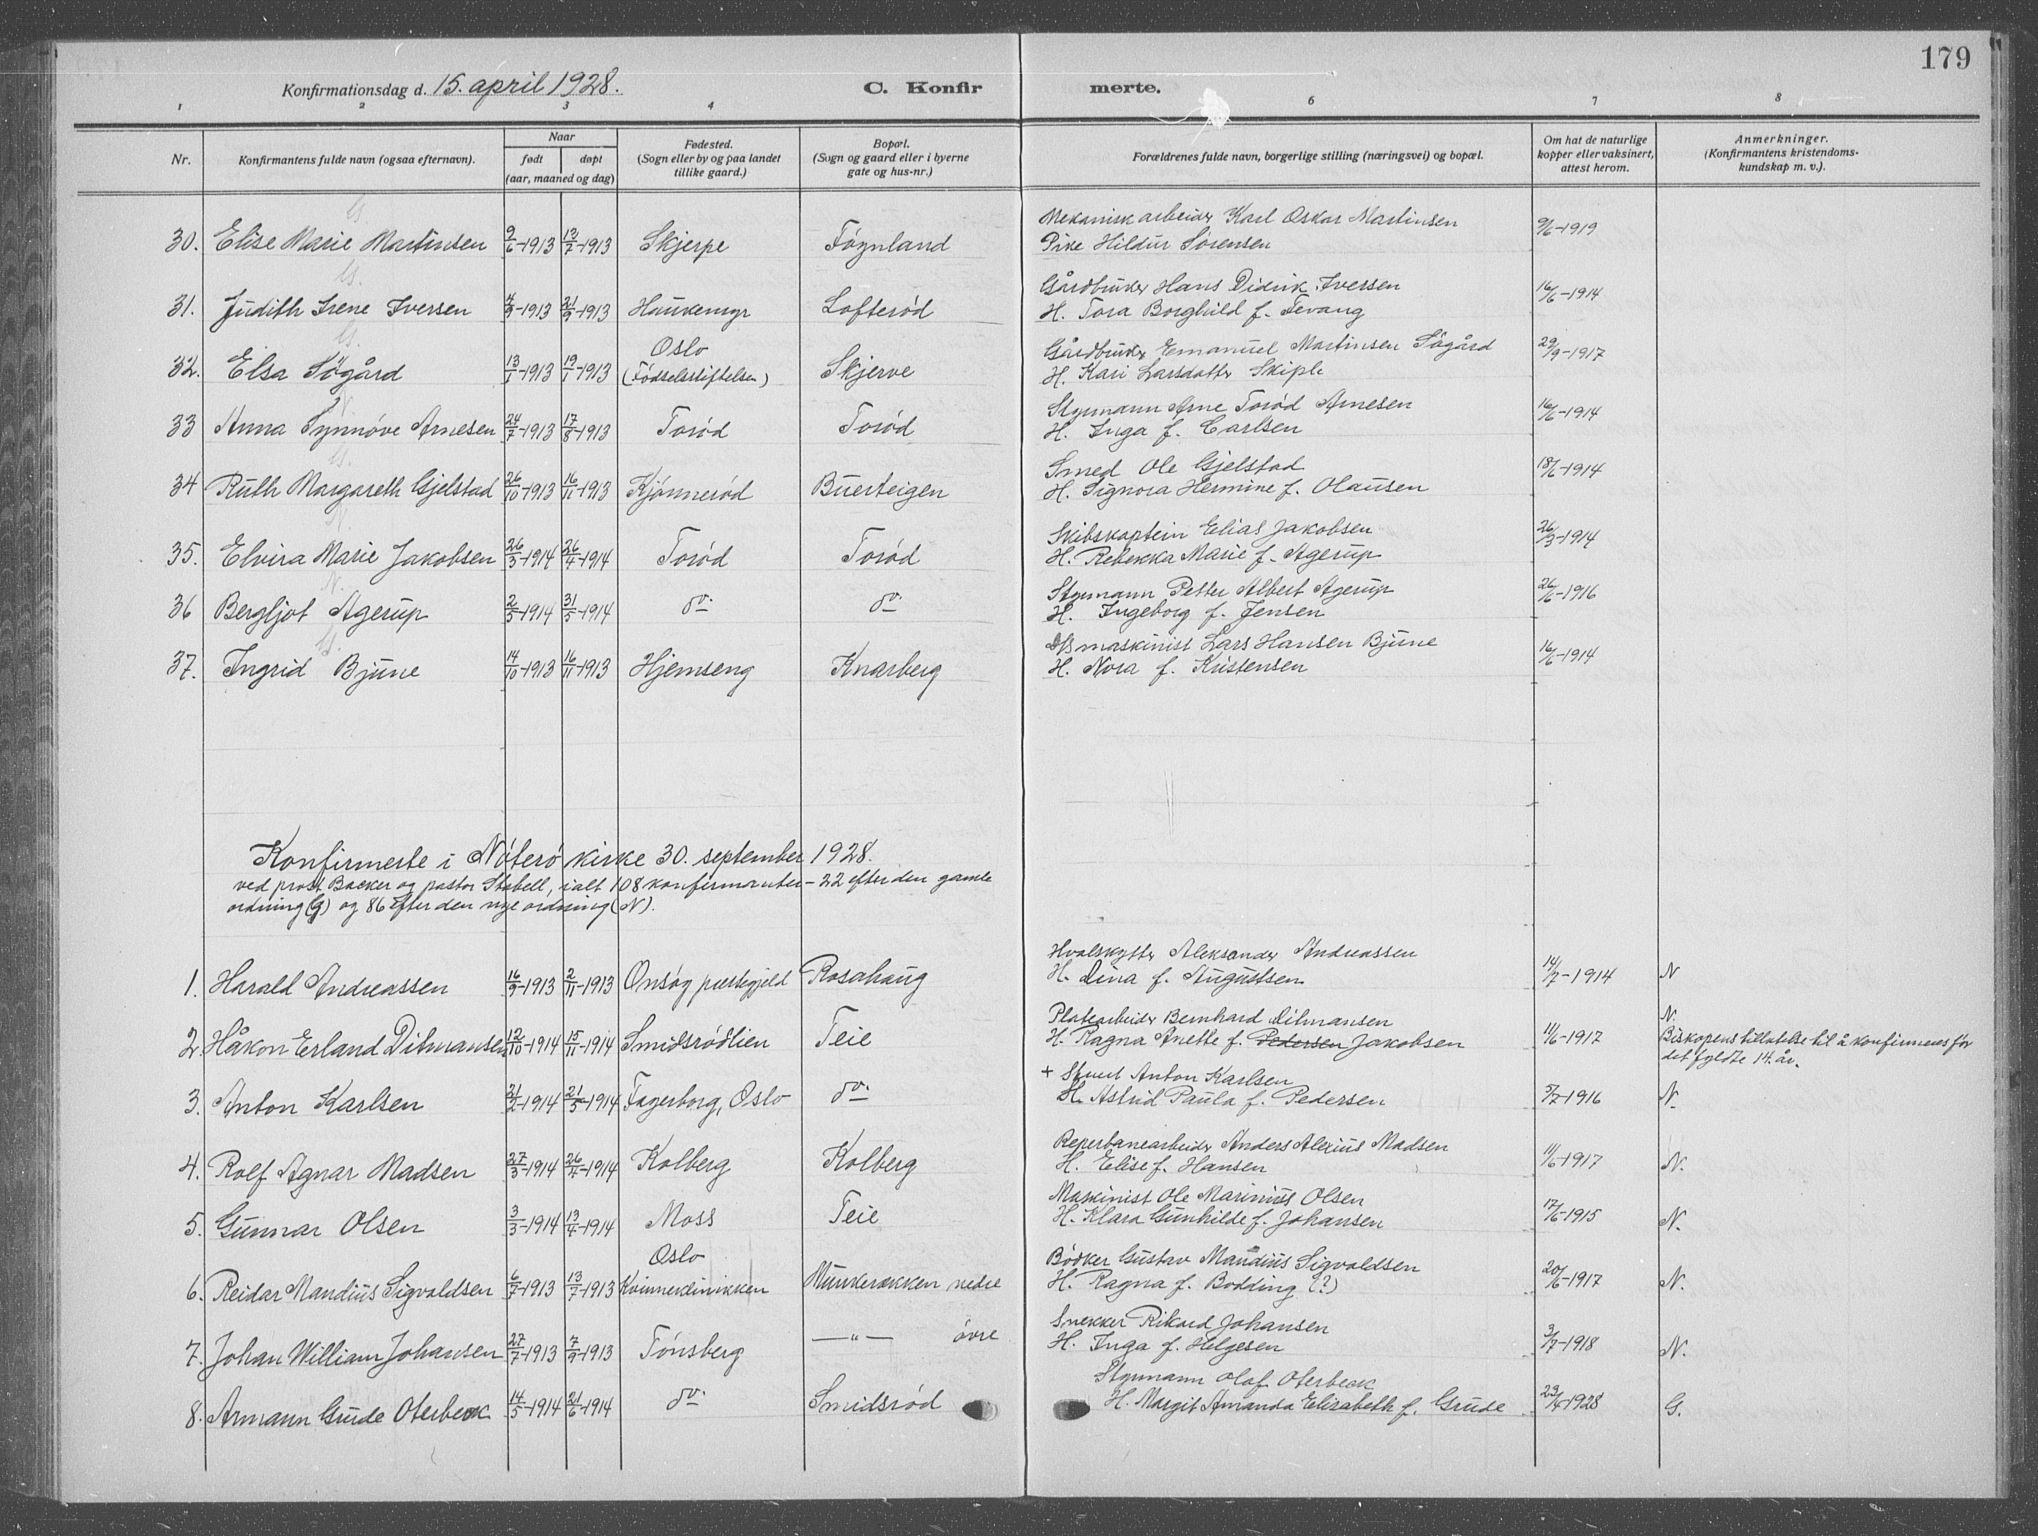 179
Konfirmationsdag d. 15. april 1928. C. Konfir merte.
1 2 3 4 6 7 8
Nr. Konfirmantens fulde navn (ogsaa efternavn). Naar født døpt (aar, maaned og dag) Fødested. (Sogn eller by og paa landet tillike gaard.) Bopæl. (Sogn og gaard eller i byerne gate og hus-nr.) Forældrenes fulde navn, borgerlige stilling (næringsvei) og bopæl. Om hat de naturlige kopper eller vaksinert, attest herom. Anmerkninger. (Konfirmantens kristendoms- kundskap m. v.).
G.
30. Elise Marie Martinsen 9/6-1913 13/7-1913 Skjerpe Føynland Mekanisk arbeider Karl Oskar Martinsen 9/6-1919
Pike Hildur Sørensen
G.
31. Judith Irene Iversen 4/3-1913 21/9-1913 Haukemyr Lofterød Gårdbruker Hans Didrik Iversen 16/6-1914
H. Tora Borghild f. Tevang
G.
32. Elsa Søgård 13/1-1913 19/1-1913 Oslo (Fødselsstiftelsen) Skjerve Gårdbruker Emanuel Martinsen Søgård 29/9-1917
H. Kari Larsdatter Skiple
33 Anna Synnøve Arnesen 24/7-1913 17/8-1913 Torød Torød Styrmann Arne Torød Arnesen 16/6-1914
H. Inga f. Carlsen
G.
34 Ruth Margareth Gjelstad 26/10-1913 16/11-1913 Kjønnerød Buerteigen Smed Ole Gjelstad 18/6-1914
H. Signora Hermine f. Olausen
N.
35. Elvira Marie Jakobsen 26/3-1914 26/4-1914 Torød Torød Skibskaptein Elias Jakobsen 26/3-1914
H. Rebekka Marie f. Agerup
N.
36 Bergljot Agerup 2/5-1914 31/5-1914 do. do. Styrmann Petter Albert Agerup 26/6-1916
H. Ingeborg f. Jensen
G.
37. Ingrid Bjune 14/10-1913 16/11-1913 Hjemseng Knarberg D/S maskinist Lars Hansen Bjune 16/6-1914
H. Nora f. Kristensen
Konfirmerte i Nøterø kirke 30. september 1928.
ved prost Backer og pastor Stabell, ialt 108 konfirmanter - 22 efter den gamle
ordning (G) og 86 efter den nye ordning (N).
1. Harald Andreassen 16/9-1913 2/11-1913 Onsøy prestegjeld Rosahaug Hvalskytter Aleksander Andreassen 14/7-1914 N
H. Lina f. Augustsen
2. Håkon Erland Ditmansen 12/10-1914 15/11-1914 Smidsrødlien Teie Platearbeider Bernhard Ditmansen 11/6-1917 N.
H. Ragna Anette f. Pedersen Jakobsen Biskopens tillatelse til å konfirmeres før
det fyldte 14. år.
3. Anton Karlsen 21/2-1914 21/5-1914 Fagerborg, Oslo do. + Stuert Anton Karlsen 5/7-1916 N.
H. Astrid Paula f. Pedersen
4. Rolf Agnar Madsen 27/3-1914 26/4-1914 Kolberg Kolberg Reperbanearbeider Anders Alexius Madsen 11/6-1917 N.
H. Elise f. Hansen
5. Gunnar Olsen 3/3-1914 13/4-1914 Moss Teie Maskinist Ole Marinius Olsen 17/6-1915 N.
H. Klara Gunhilde f. Johansen
6. Reidar Mandius Sigvaldsen 6/7-1913 13/7-1913 Oslo Kvinneklinikken Munkerekken nedre Bødker Gustav Mandius Sigvaldsen 20/6-1917 N.
H. Ragna f. Bodding (?)
7. Johan William Johansen 27/7-1913 7/9-1913 Tønsberg —"— øvre Snekker Rikard Johansen 3/7-1918 N.
H. Inga f. Helgesen
8. Armann Grude Oterbeck 14/5-1914 21/6-1914 do. Smidsrød Styrmann Olaf Oterbeck 23/4-1928 G.
H. Margit Amanda Elisabeth f. Grude